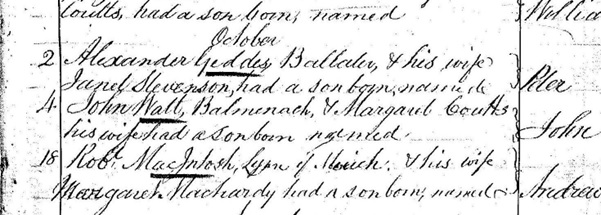 Coutts, had a son born, named
October
2 Alexander Geddes, Ballater, & his wife
Janet Stevenson, had a son born, named Peter
4 John Watt, Balmenach, & Margaret Coutts
his wife had a son born named John
18 Robt. MacIntosh, of & his wife
Margaret Machardy had a son born, named Andrew